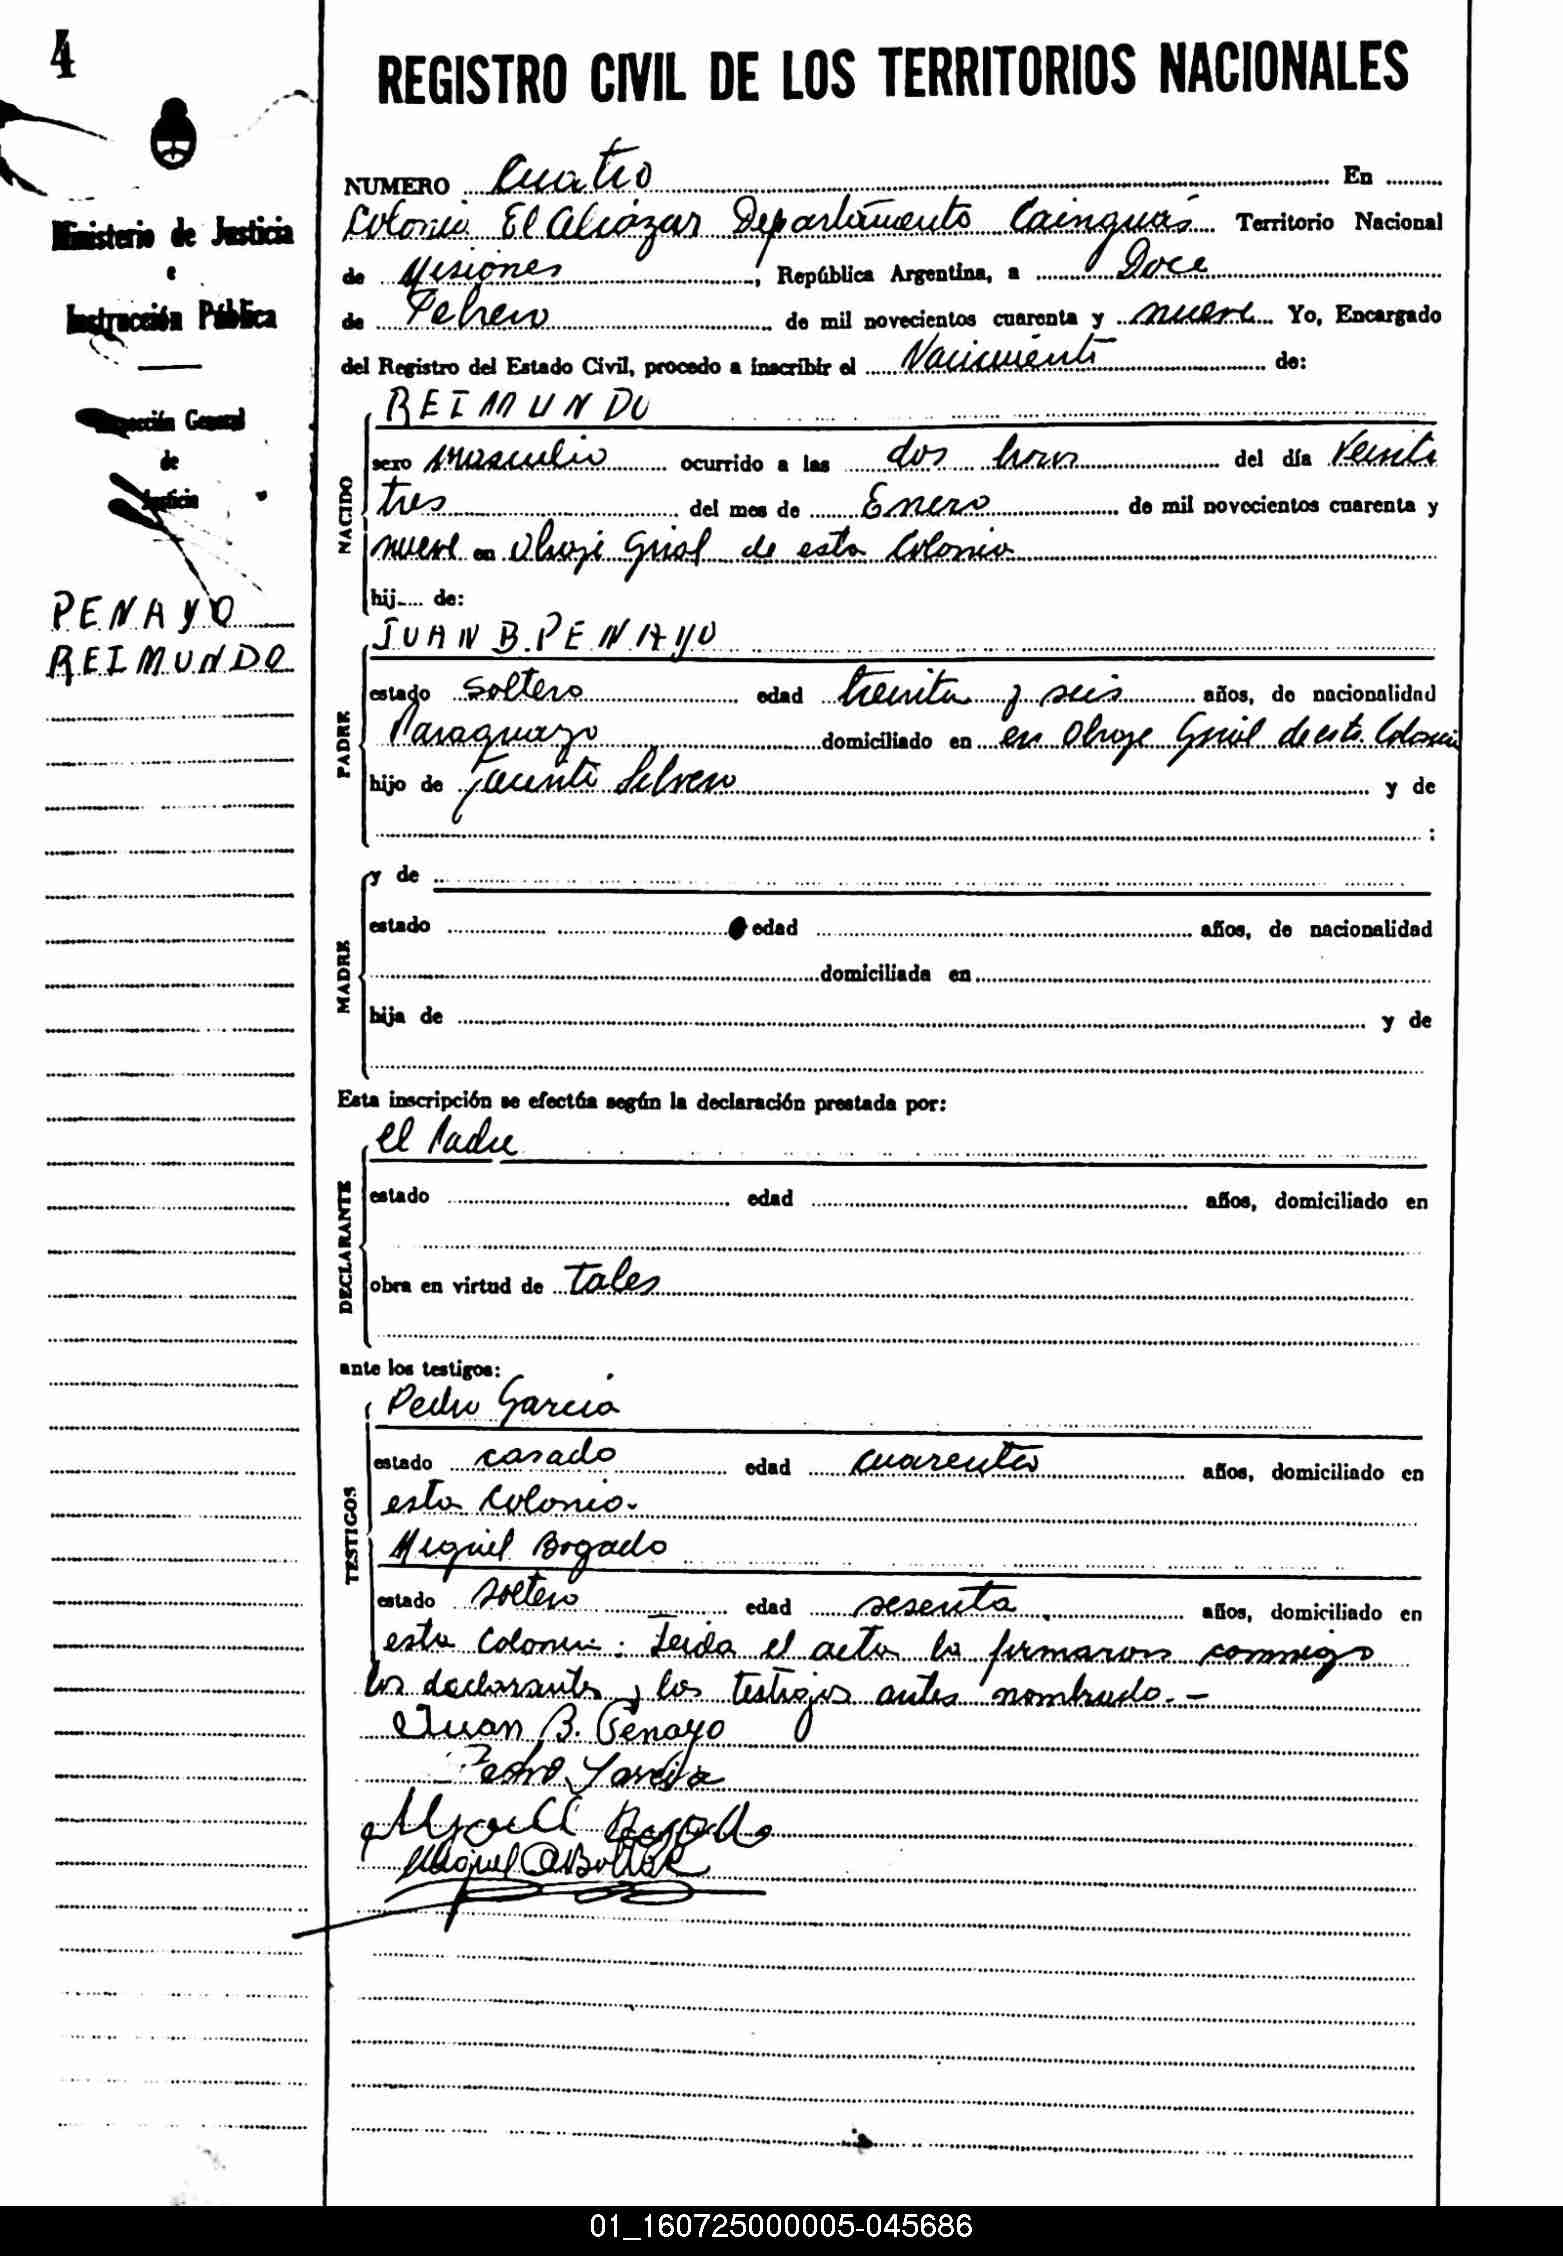 4
REGISTRO CIVIL DE LOS TERRITORIOS NACIONALES
Ministerio de Justicia
e
Instrucción Pública
Inspección General
de
Justicia
PENAYO
REIMUNDO
NUMERO Cuatro En
Colonia El Alcázar Departamento Cainguás Territorio Nacional
de Misiones, República Argentina, a Doce
de Febrero de mil novecientos cuarenta y nueve Yo, Encargado
del Registro del Estado Civil, procedo a inscribir el Nacimiento de:
NACIDO
REIMUNDO
sexo masculio ocurrido a las dos horas del día Veinti
tres del mes de Enero de mil novecientos cuarenta y
nueve en de esta Colonia
hij de:
PADRE
JUAN B. PENAYO
estado soltero edad treinta y seis años, de nacionalidad
Paraguayo domiciliado en en de esta Colonia
hijo de y de
:
MADRE
y de
estado edad años, de nacionalidad
domiciliada en
hija de y de
Esta inscripción se efectúa según la declaración prestada por:
DECLARANTE
el Padre
estado edad años, domiciliado en
obra en virtud de tales
ante los testigos:
TESTIGOS
Pedro Garcia
estado casado edad cuarenta años, domiciliado en
esta Colonia.
Miguel Bogado
estado soltero edad sesenta años, domiciliado en
esta Colonia: Leida el acta la firmaron conmigo
los declarantes y los testigos antes nombrado.-
Juan B. Penayo
Pedro Garcia
Bogado
Miguel
01_160725000005-045686